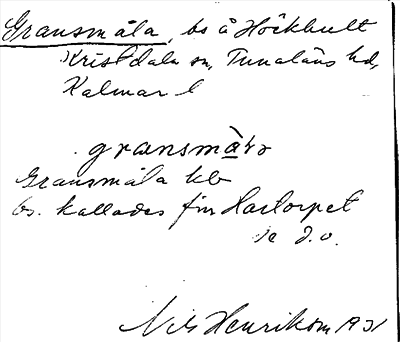 Gransmåla, bs å Höckhult
Kristdala sn, Tunaläns hd,
Kalmar l
gransmà̱lə
Gransmåla kb
bs. kallades förr Hartorpet
se d. o.
Nils Henrikson 1931